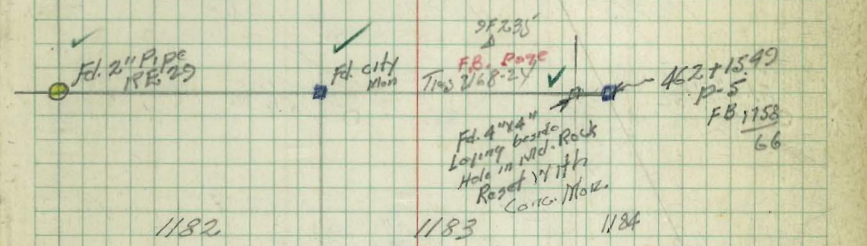 Fd. 2" Pipe
RE 29
Fd. City
Mon
F.B. Page
Ties 2168-24
462+15.49
P-5
FB 1758
66
Fd. 4"x4"
Laying beside
Hole in Md. Rock
Reset With
Conc. Mon.
1182
1183
1184